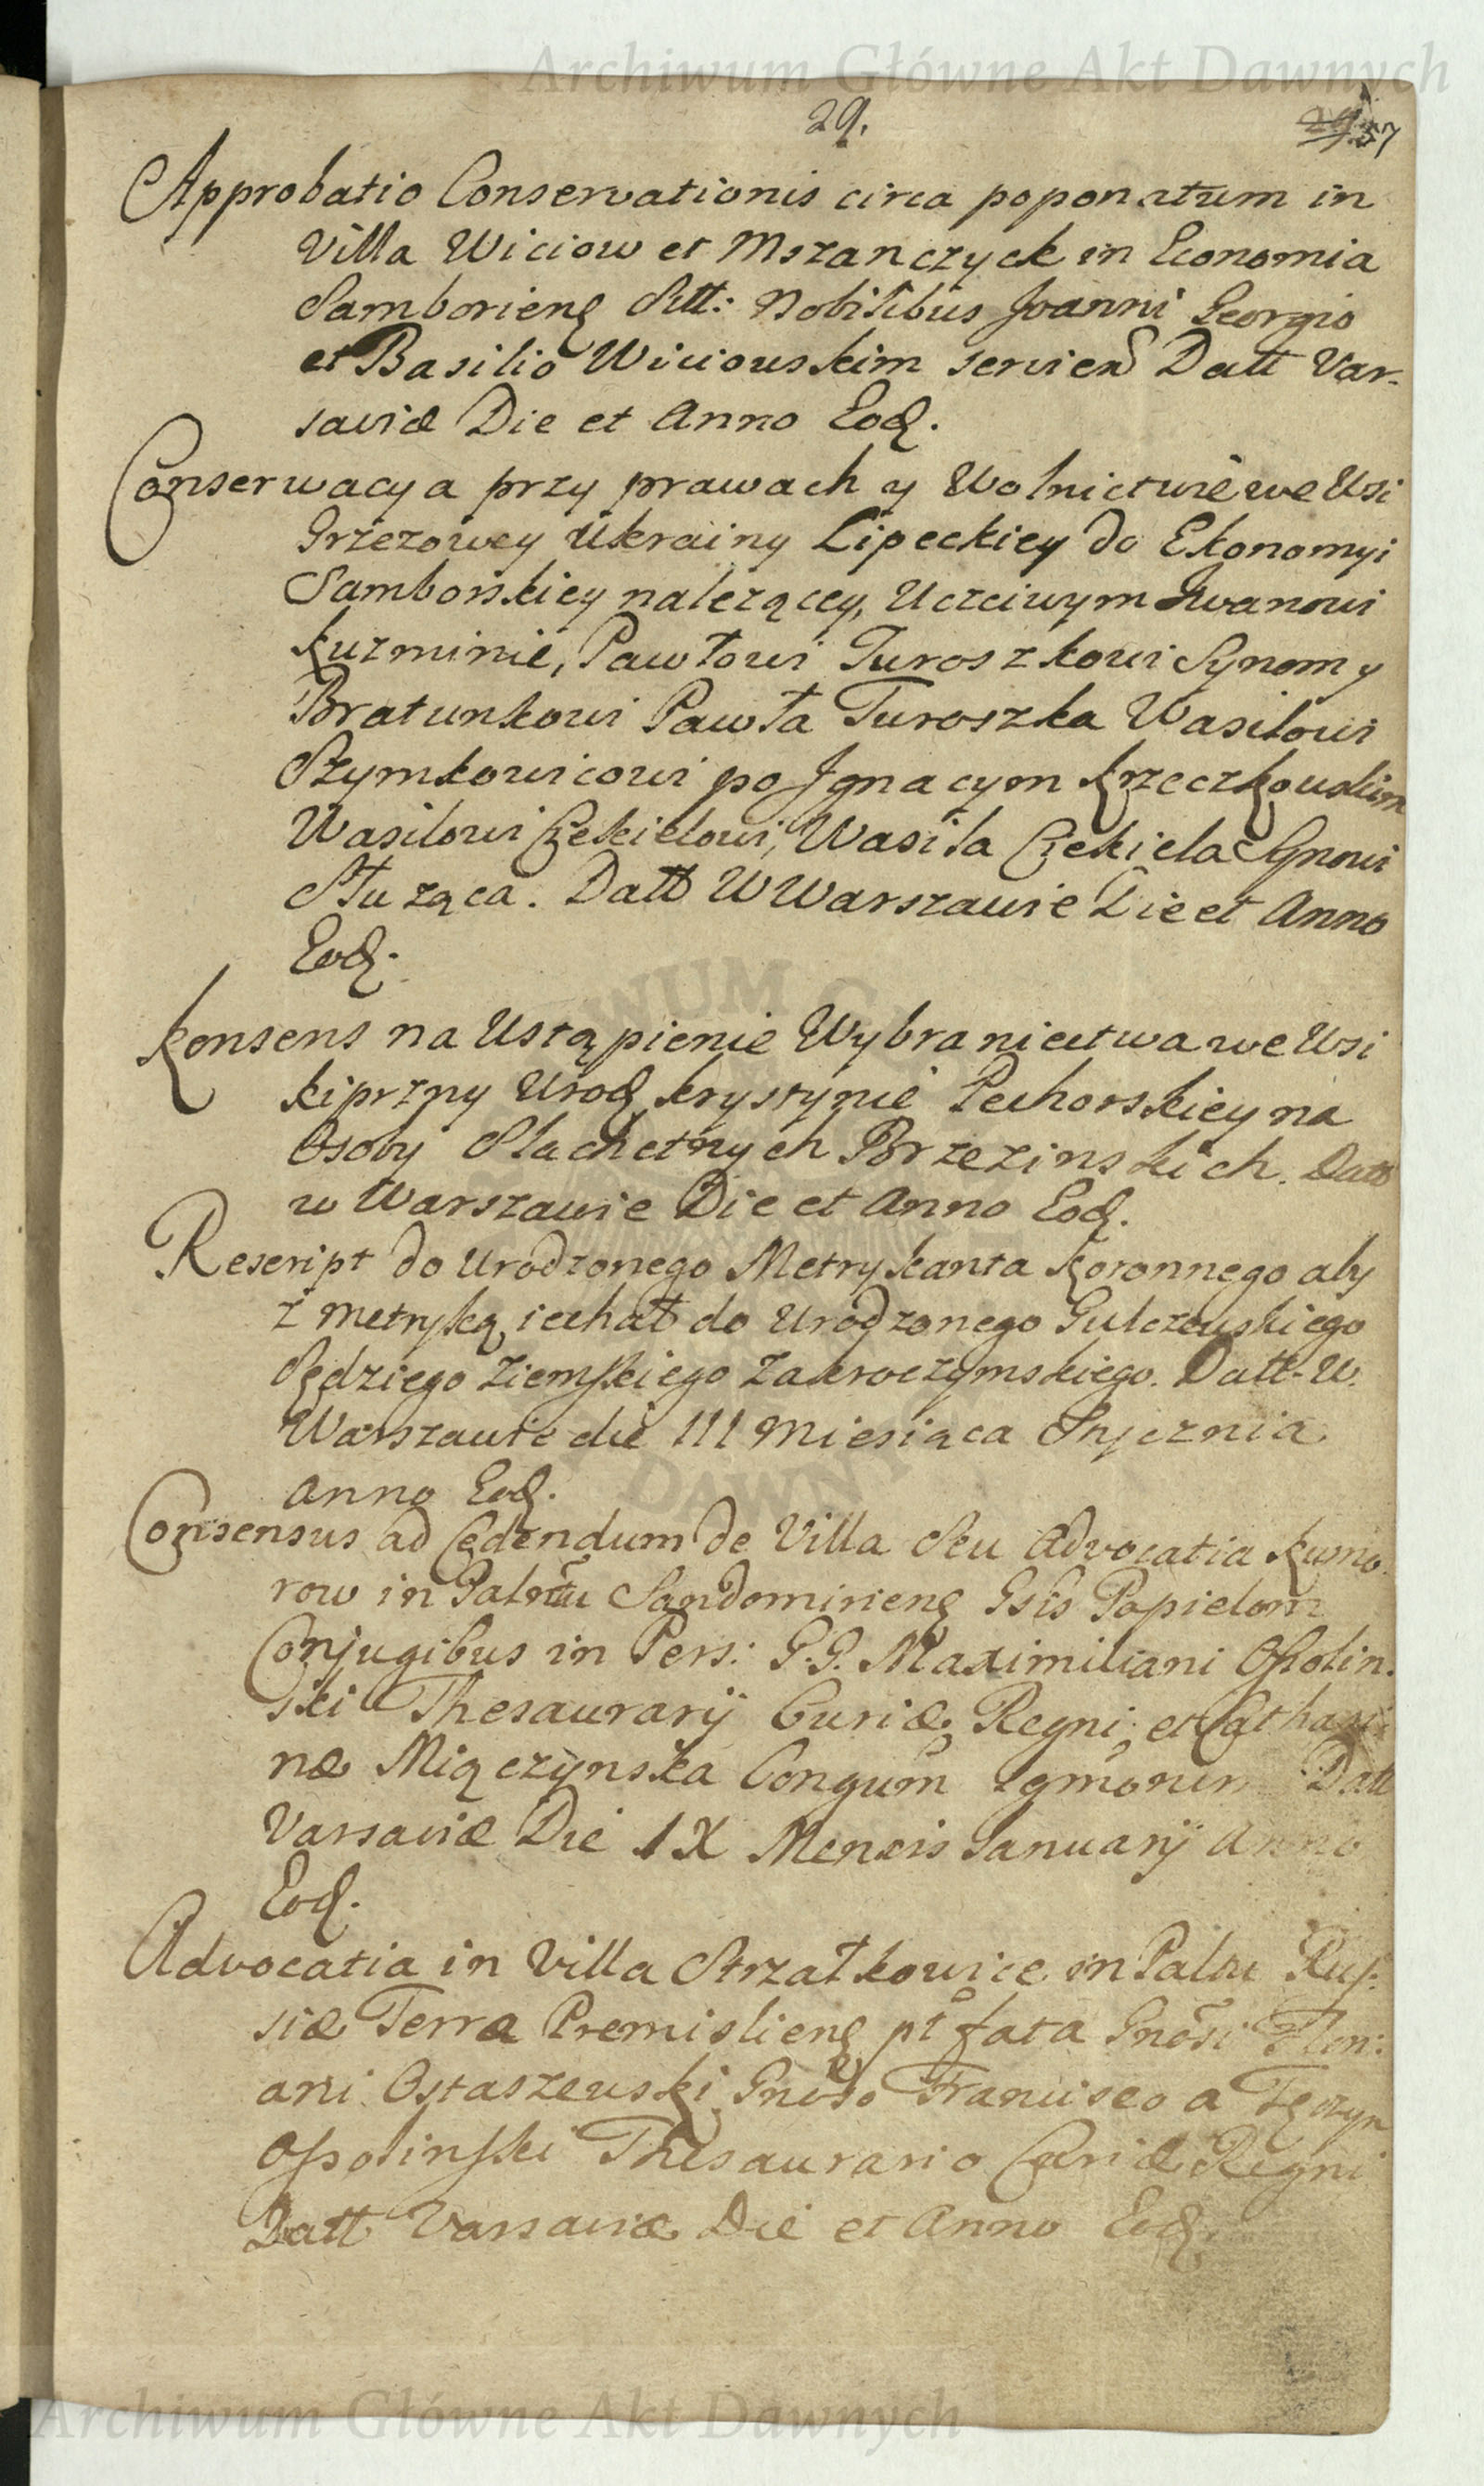 Archiwum Główne Akt Dawnych
29.
29. 57
Approbatio Conservationis circa poponatum in
Villa Wiciow et Mszanczyck in Economia
Samborieng Sitt: Nobilibus Joanni Georgio
et Basilio Wiciowskim servien Datt Var-
saviæ Die et Anno Eod.
Conserwacya przy prawach y Wolnictwie we Wsi
Grzezowey Ukrainy Lipeckiey do Ekonomyi
Samborskiey nalezącey, Uczciwym Iwanowi
Kuzminie, Pawłowi Turoszkowi Synom y
Bratunkowi Pawła Turoszka Wasilowi
Szymkowicowi po Jgnacym Krzeczkowskim
Wasilowi Czekielowi, Wasila Czekiela Synowi
Służąca. Datt W Warszawie Die et Anno
Eod.
Konsens na Ustąpienie Wybraniectwa we Wsi
Kiprzny Urod Krystynie Pechorskiey na
Osoby Slachetnych Brzezinskich. Datt
w Warszawie Die et Anno Eod.
Rescript do Urodzonego Metrykanta Koronnego aby
z Metryką iechał do Urodzonego Gulczewskiego
Sędziego Ziemskiego Zakroczymskiego. Datt. W.
Warszawie die III Miesiąca Stycznia
Anno Eod.
Consensus ad Cedendum de Villa Seu Advocatia Komo-
row in Palntu Sandomirieng Gsis Popielom
Conjugibus in Pers: G.G. Maximiliani Ossolin-
ski Thesaurarij Curiæ Regni et Cathari
næ Miączynska Congum Lgmorum Datt
Varsaviæ Die IX Mensis Januarij Anno
Eod.
Advocatia in Villa Strzałkowice in Palttu Rus-
siæ Terra Premislieng pt fata Gnosi Flori-
ani Ostaszewski Gnoso Francisco a Tęczyn
Ossolinski Thesaurario Curiæ Regni
Datt Varsaviæ Die et Anno Eod.
Archiwum Główne Akt Dawnych